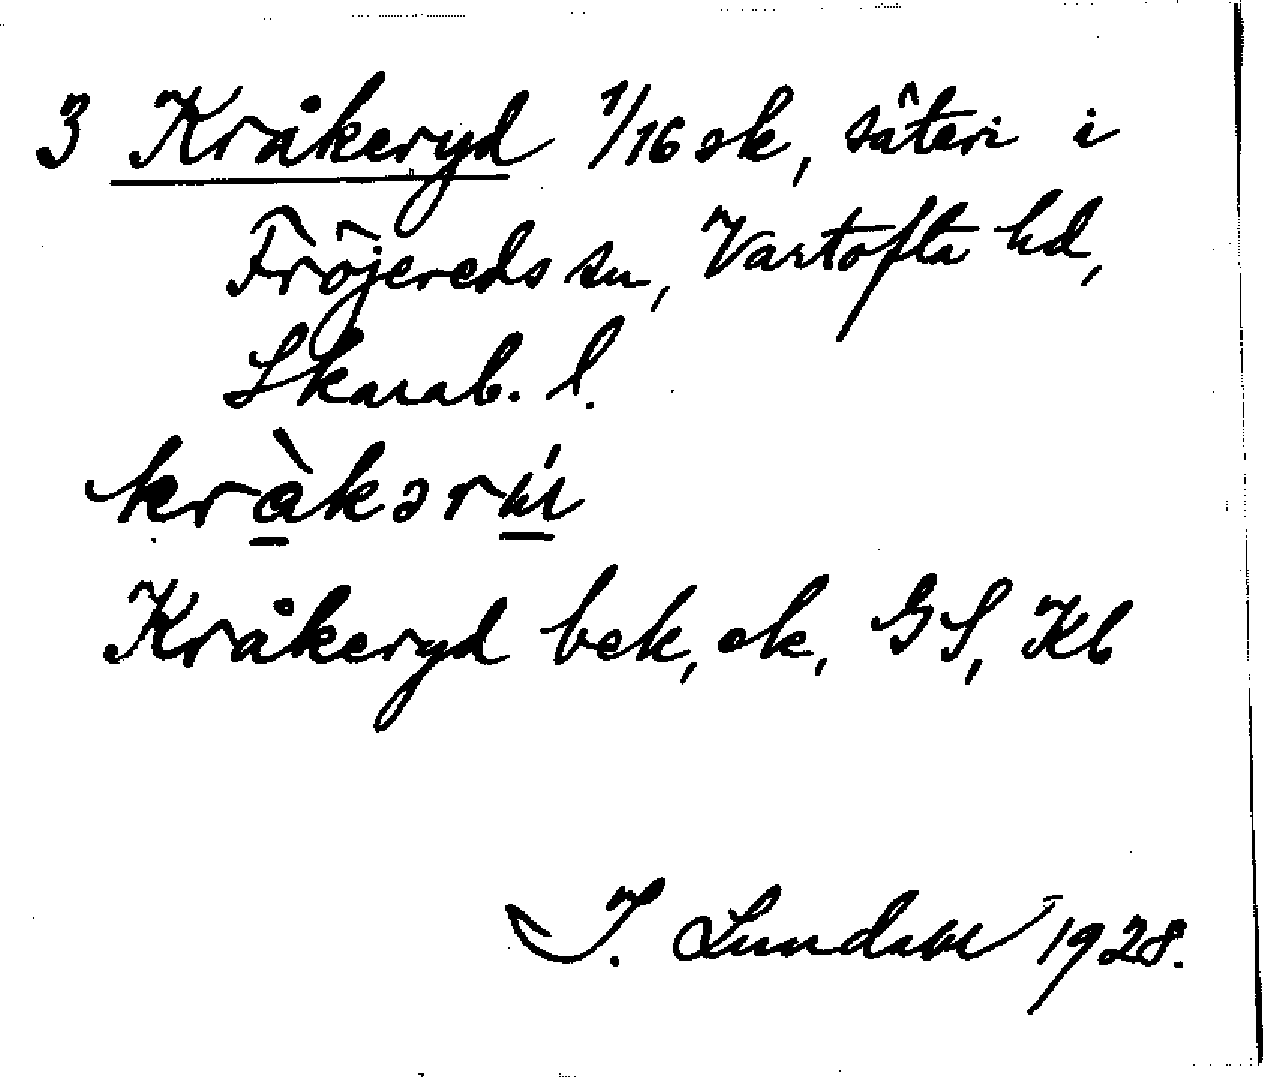 3 Kråkeryd 1/16 sk, säteri i
Fröjereds sn, Vartofta hd,
Skarab. l.
Kråkeryd bek, ek, GS, Kb
I. Lundahl 1928.